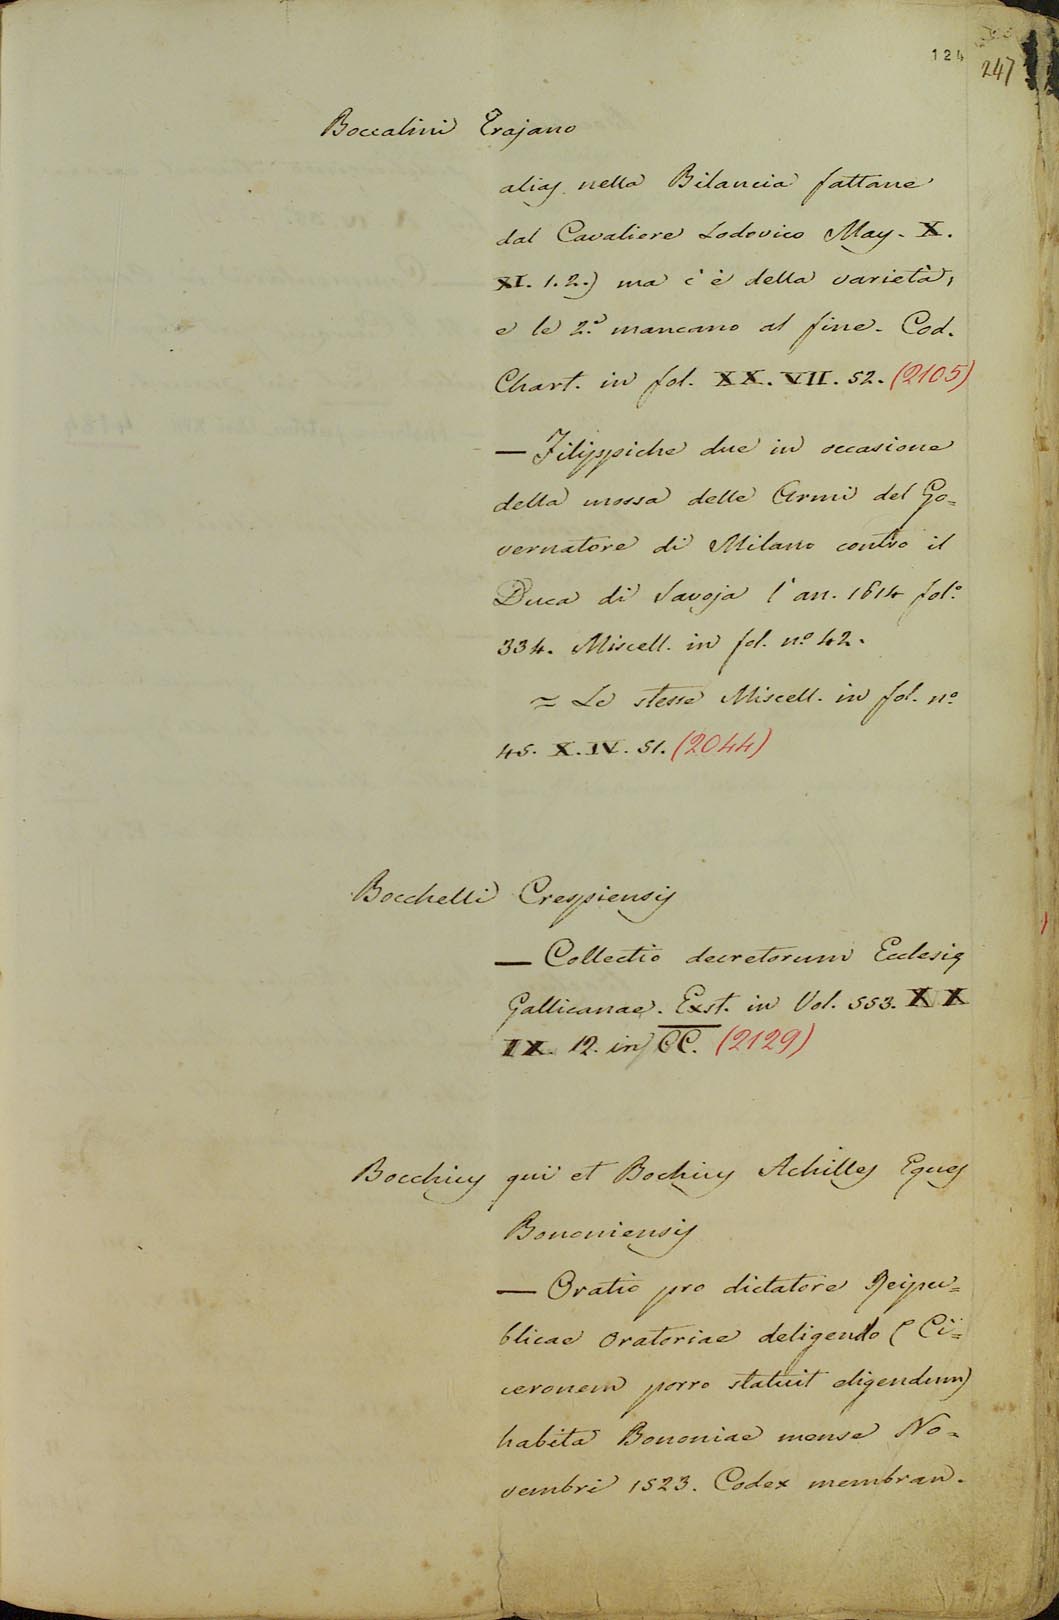 124
247
Boccalini Trajano
alias nella Bilancia fattane
dal Cavaliere Lodovico May. X.
XI. 1. 2.) ma c'è della varietà,
e le 2.e mancano al fine. Cod.
Chart. in fol. XX. VII. 52. (2105)
— Filippiche due in occasione
della mossa delle Armi del Go=
vernatore di Milano contro il
Duca di Savoja l'an. 1614 fol.o
334. Miscell. in fol. n.o 42.
= Le stesse Miscell. in fol. n.o
45. X. IV. 51. (2044)
Bocchelli Crespiensis
— Collectio decretorum Ecclesię
Gallicanae. Exst. in Vol. 553. XX
IX. 12. in CC. (2129)
Bocchius qui et Bochius Achilles Eques
Bononiensis
— Oratio pro dictatore Reipu=
blicae Oratoriae deligendo (Ci=
ceronem porro statuit eligendum)
habita Bononiae mense No=
vembri 1523. Codex membran.